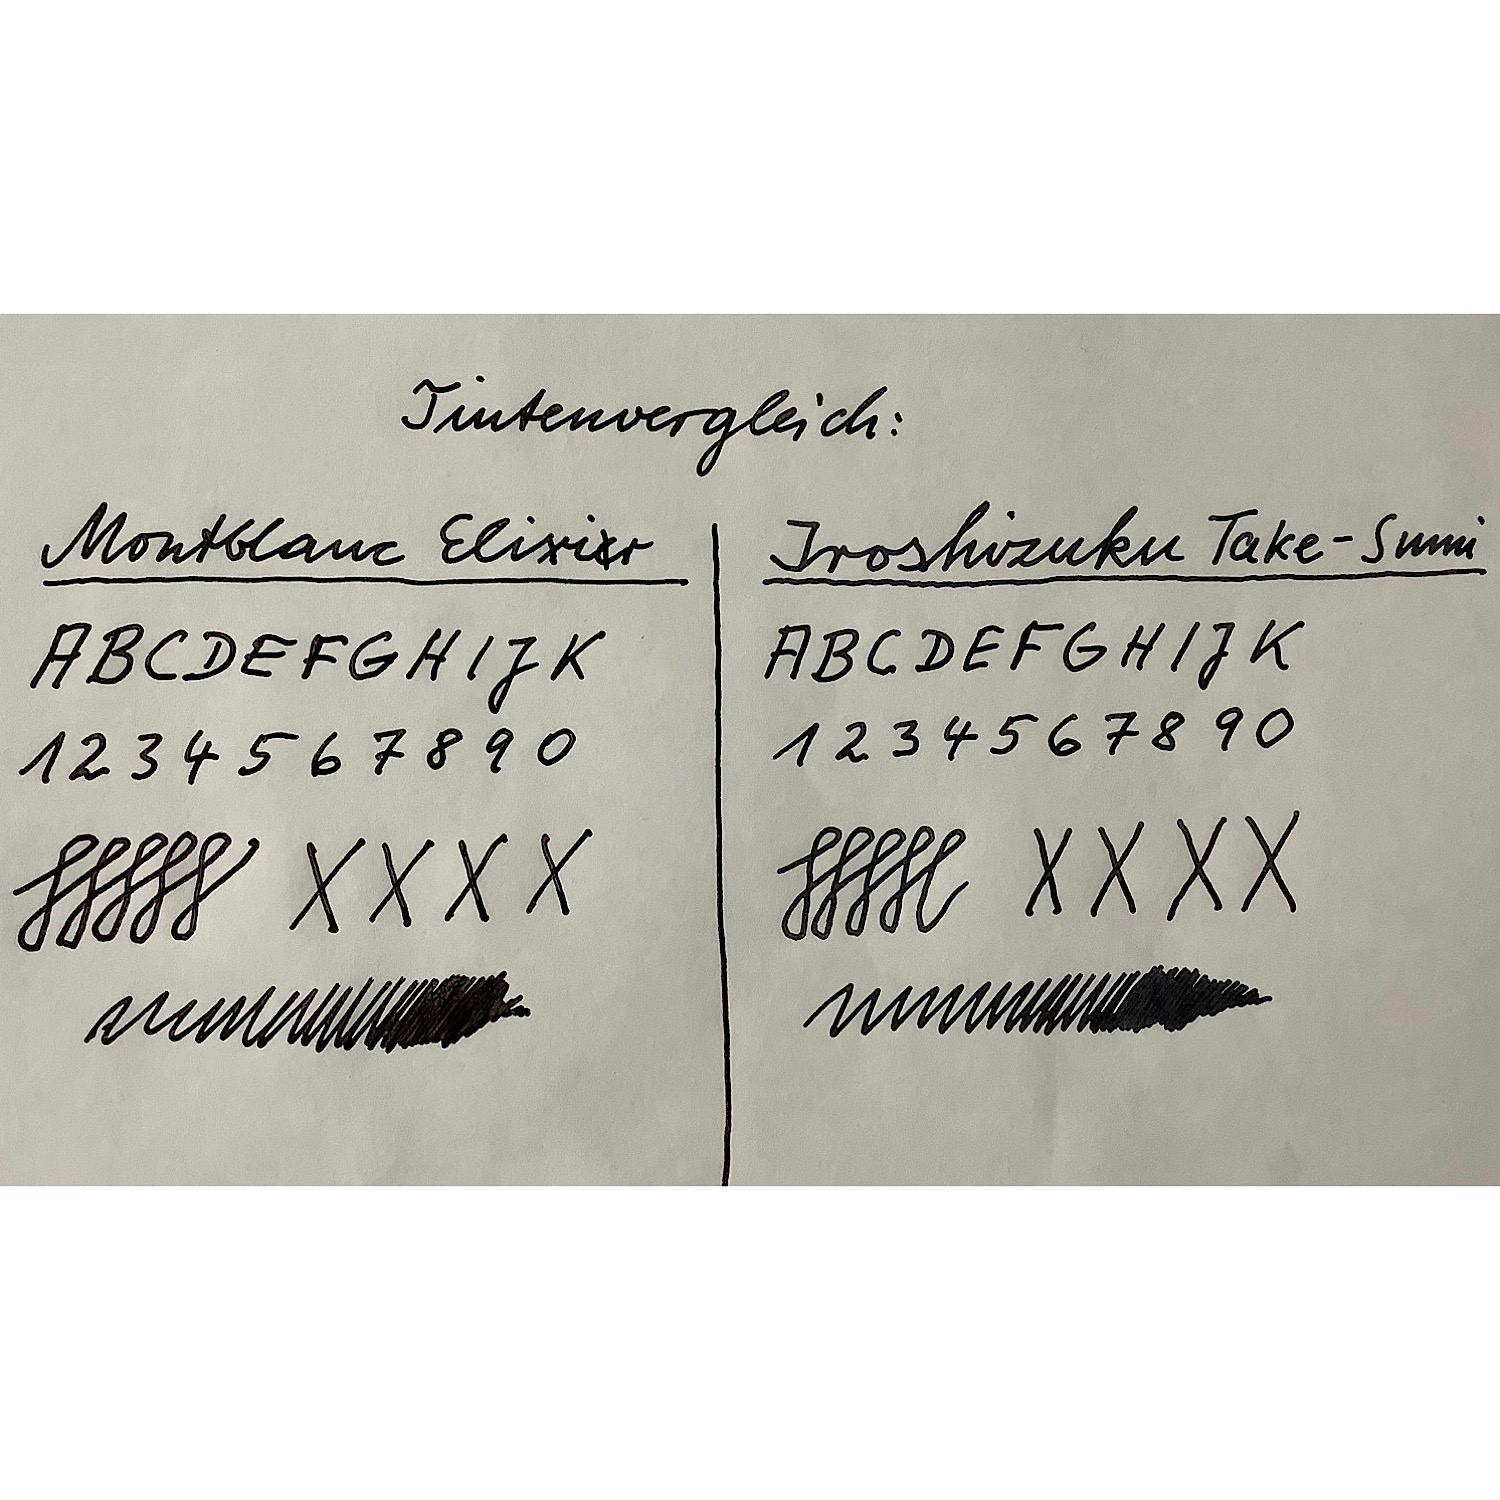 Tintenvergleich:
Montblanc Elixier
ABCDEFGHIJK
1234567890
XXXX
Iroshizuku Take-Sumi
ABCDEFGHIJK
1234567890
XXXX